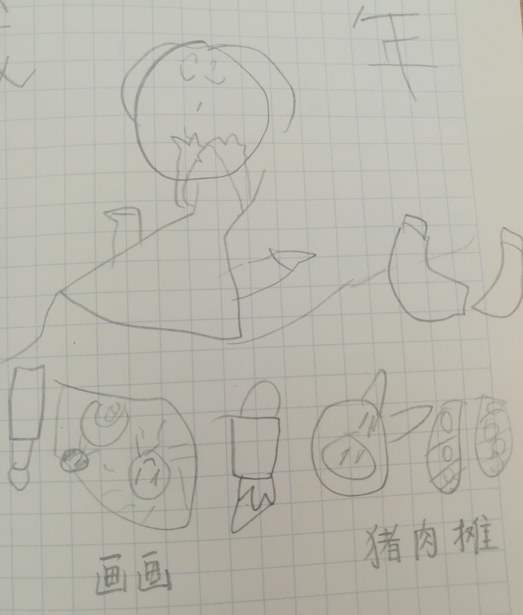 年
画画
猪肉摊